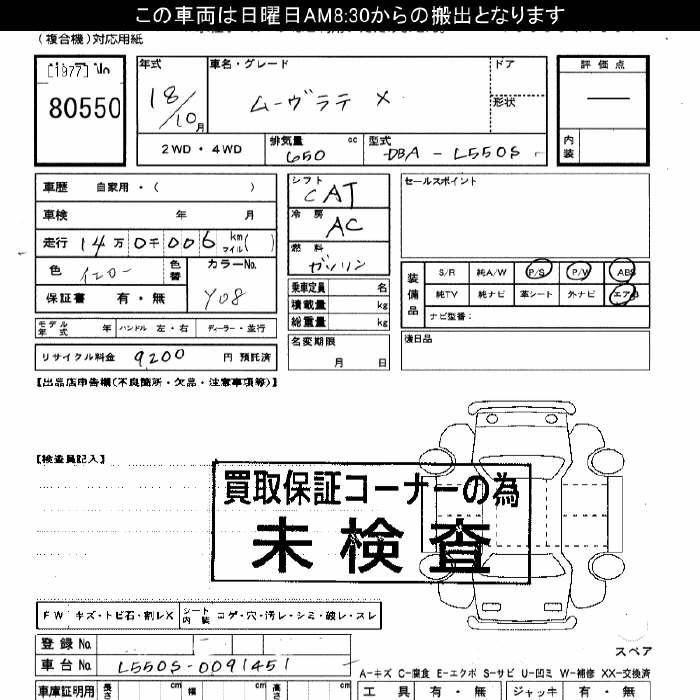 この車両は日曜日AM8:30からの搬出となります
(複合機)対応用紙
[1977] No
80550
年式 車名・グレード ドア 評価点
18/10月 ムーヴラテ X 形状
2WD・4WD 排気量 cc 650 型式 DBA - L550S 内装
車歴 自家用・( ) シフト CAT セールスポイント
車検 年 月 冷房 AC
走行 14万0千006 km マイル( ) 燃料 ガソリン
色 イエロー 色替 カラーNo. Y08
装備品 S/R 純A/W P/S P/W ABS
純TV 純ナビ 革シート 外ナビ エアB
ナビ型番:
保証書 有・無 乗車定員 名
積載量 kg
総重量 kg
モデル年式 年 ハンドル 左・右 ディーラー・並行
名変期限 月 日 後日品
リサイクル料金 9200 円 預託済
【出品店申告欄(不良箇所・欠品・注意事項等)】
【検査員記入】
買取保証コーナーの為
未検査
FW キズ・トビ石・割レX シート内装 コゲ・穴・汚レ・シミ・破レ・スレ
登録No.
スペア
車台No. L550S-0091451
A-キズ C-腐食 E-エクボ S-サビ U-凹ミ W-補修 XX-交換済
車庫証明用 長さ cm 幅 cm 高さ cm 工具 有・無 ジャッキ 有・無